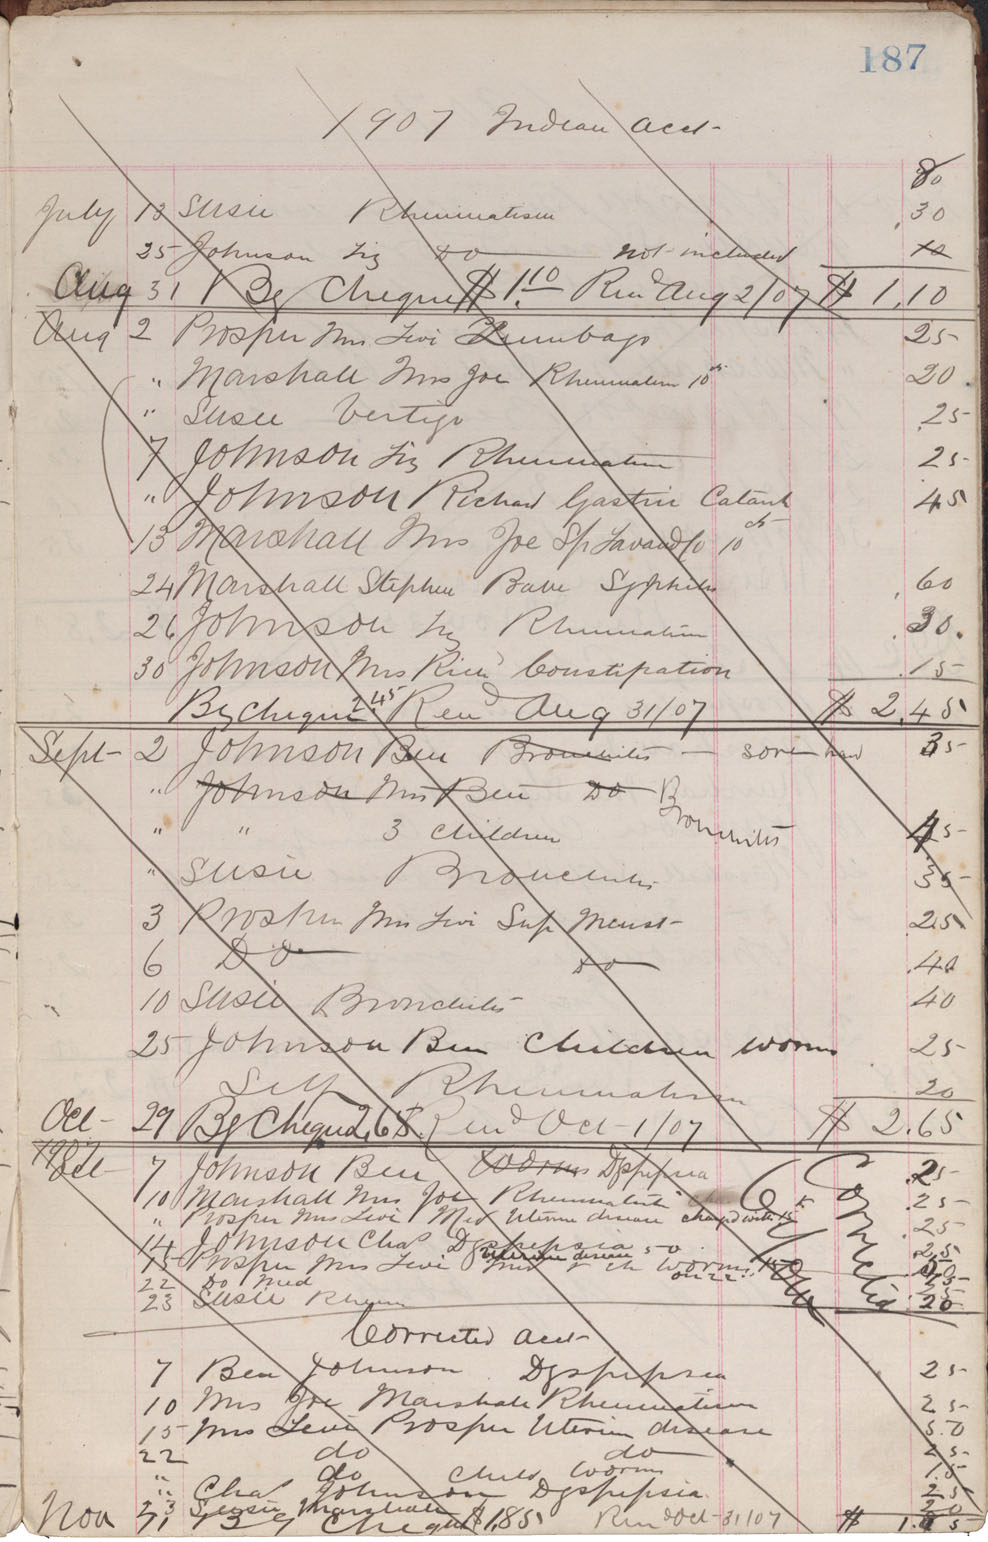 187
1907 Indian acct-
80
July 13 Susie Rheumatism .30
25 Johnson Liz DO not included
Aug 31 By Cheque $1.10 Ren'd Aug 2/07 $ 1.10
Aug 2 Prosper Mrs Levi Lumbago 25
" Marshall Mrs Joe Rheumatism 10cts 20
" Susie Vertigo .25
7 Johnson Liz Rheumatism 25
" Johnson Richard Gastric Catarrh 45
13 Marshall Mrs Joe Sp Lavand Co 10cts
24 Marshall Stephen Babe Syphilis .60
26 Johnson Liz Rheumatism .30.
30 Johnson Mrs Rich'd Constipation .15
By Cheque 2.45 Ren'd Aug 31/07 $ 2.45
Sept- 2 Johnson Ben Bronchitis — sore 35
" Johnson Mrs Ben DO Bronchitis
" " 3 Children 45
" Susie Bronchitis 35
3 Prosper Mrs Levi Sup Menst- .25
6 DO do .40
10 Susie Bronchitis 40
25 Johnson Ben Children worms 25
Self Rheumatism 20
Oct- 29 By Cheque 2.65 Ren'd Oct-1/07 $ 2.65
1907
Oct- 7 Johnson Ben Worms Dyspepsia .25
10 Marshall Mrs Joe Rheumatism .25
" Prosper Mrs Levi Med Uterine disease .25
14 Johnson Chas Dyspepsia 25
15 Prosper Mrs Levi worms
22 Do Med
23 Susie Rheum 20
Corrected
Corrected acct-
7 Ben Johnson Dyspepsia 25
10 Mrs Joe Marshall Rheumatism 25
15 Mrs Levi Prosper Uterine disease 50
22 do do 25
" do Child Worms 15
" Chas Johnson Dyspepsia 25
23 Susie Marshall 20
Nov 71 By Cheque $1.85 Ren'd Oct-31/07 $ 1.85